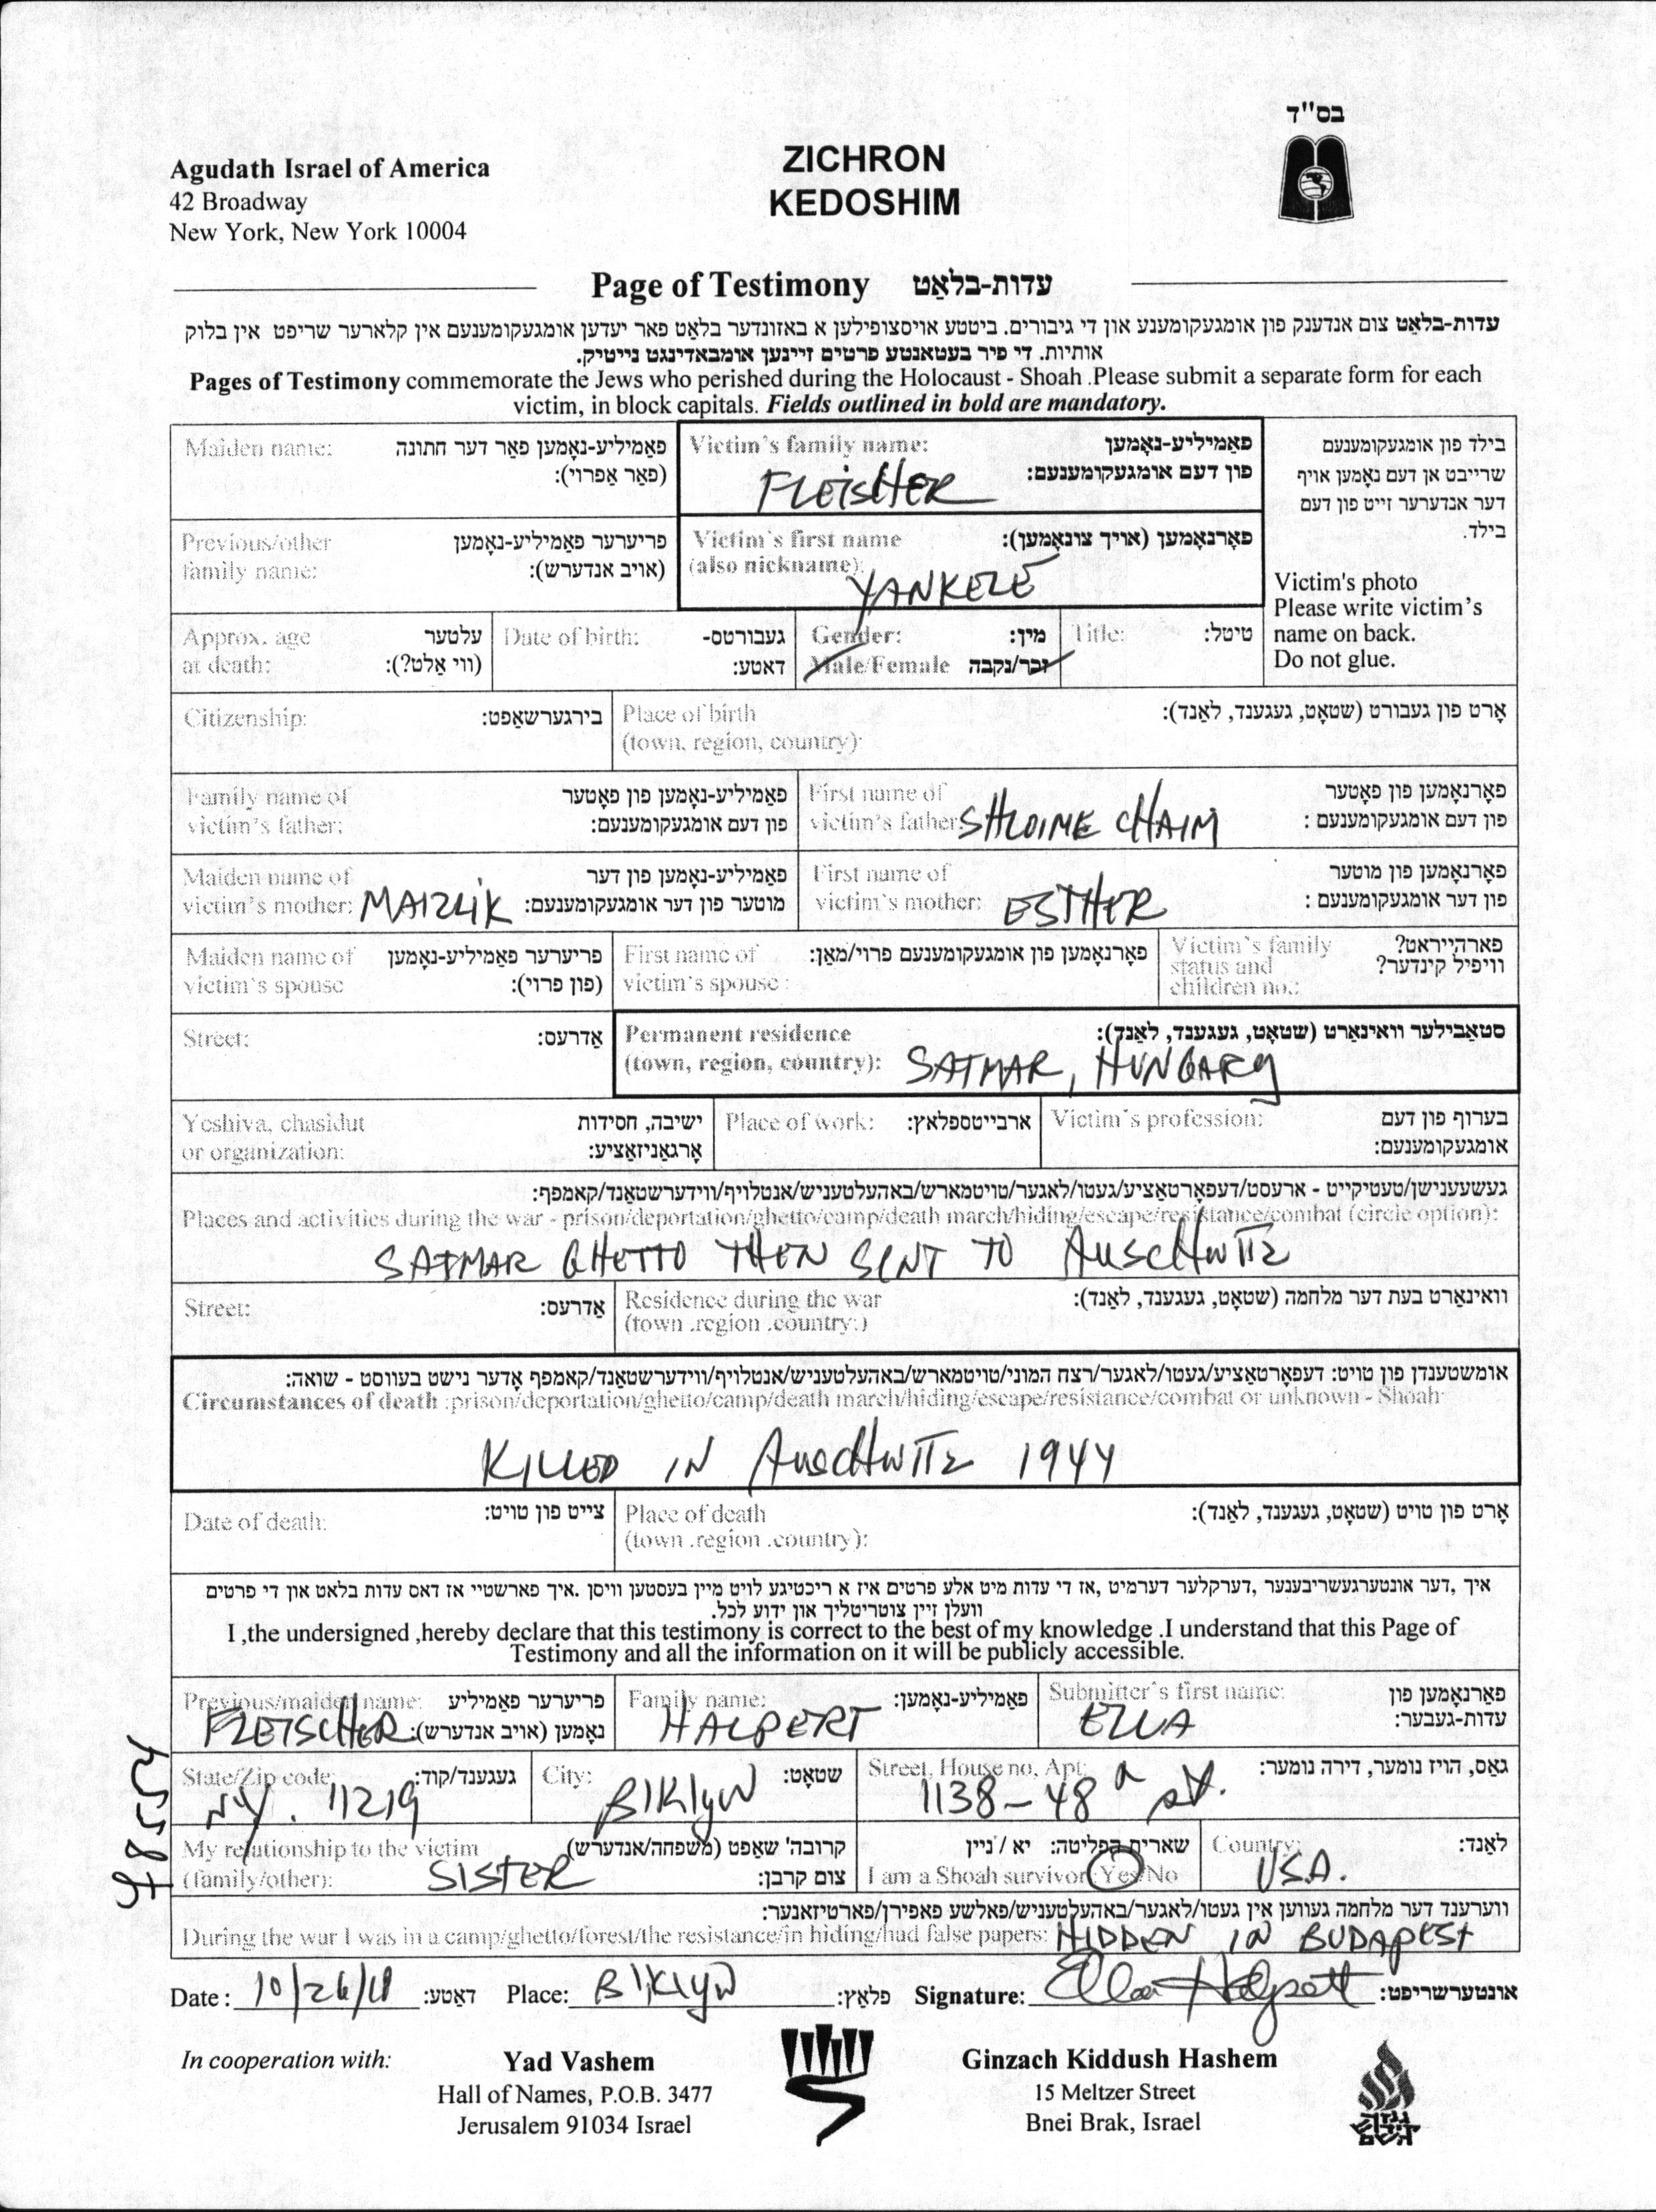 בס"ד
Agudath Israel of America
42 Broadway
New York, New York 10004
ZICHRON
KEDOSHIM
Page of Testimony עדות-בלאַט
עדות-בלאַט צום אנדענק פון אומגעקומענע און די גיבורים. ביטטע אויסצופילען א באזונדער בלאַט פאר יעדען אומגעקומענעם אין קלארער שריפט אין בלוק
אותיות. די פיר בעטאנטע פרטים זיינען אומבאדינגט נייטיק.
Pages of Testimony commemorate the Jews who perished during the Holocaust - Shoah .Please submit a separate form for each
victim, in block capitals. Fields outlined in bold are mandatory.
Maiden name: פאַמיליע-נאָמען פאַר דער חתונה
(פאַר אַפרוי):
Victim's family name: פאַמיליע-נאָמען
פון דעם אומגעקומענעם:
FLEISCHER
בילד פון אומגעקומענעם
שרייבט אן דעם נאָמען אויף
דער אנדערער זייט פון דעם
בילד.
Victim's photo
Please write victim's
name on back.
Do not glue.
Previous/other פריערער פאַמיליע-נאָמען
family name: (אויב אנדערש):
Victim's first name פאָרנאָמען (אויך צונאָמען):
(also nickname):
YANKELE
Approx. age עלטער
at death: (ווי אַלט?):
Date of birth: געבורטס-
דאטע:
Gender: מין:
Male/Female זכר/נקבה
Title: טיטל:
Citizenship: בירגערשאַפט:
Place of birth אָרט פון געבורט (שטאָט, געגענד, לאַנד):
(town, region, country):
Family name of פאַמיליע-נאָמען פון פאָטער
victim's father: פון דעם אומגעקומענעם:
First name of פאָרנאָמען פון פאָטער
victim's father: SHLOIME CHAIM פון דעם אומגעקומענעם :
Maiden name of פאַמיליע-נאָמען פון דער
victim's mother: MAIZLIK מוטער פון דער אומגעקומענעם:
First name of פאָרנאָמען פון מוטער
victim's mother: ESTHER פון דער אומגעקומענעם :
Maiden name of פריערער פאַמיליע-נאָמען
victim's spouse (פון פרוי):
First name of פאָרנאָמען פון אומגעקומענעם פרוי/מאַן:
victim's spouse :
Victim's family פארהייראט?
status and וויפיל קינדער?
children no.:
Street: אַדרעס:
Permanent residence סטאַבילער וואוינאָרט (שטאָט, געגענד, לאַנד):
(town, region, country): SATMAR, HUNGARY
Yeshiva, chasidut ישיבה, חסידות
or organization: אָרגאַניזאַציע:
Place of work: ארבייטספלאַץ:
Victim's profession: בערוף פון דעם
אומגעקומענעם:
געשעענישן/טעטיקייט - ארעסט/דעפאָרטאַציע/געטו/לאגער/טויטמארש/באהעלטעניש/אנטלויף/ווידערשטאַנד/קאמפף:
Places and activities during the war - prison/deportation/ghetto/camp/death march/hiding/escape/resistance/combat (circle option):
SATMAR GHETTO THEN SENT TO AUSCHWITZ
Street: אַדרעס:
Residence during the war וואוינאָרט בעת דער מלחמה (שטאָט, געגענד, לאַנד):
(town .region .country:)
אומשטענדן פון טויט: דעפאָרטאַציע/געטו/לאגער/רצח המוני/טויטמארש/באהעלטעניש/אנטלויף/ווידערשטאַנד/קאמפף אָדער נישט בעווסט - שואה:
Circumstances of death :prison/deportation/ghetto/camp/death march/hiding/escape/resistance/combat or unknown - Shoah
KILLED IN AUSCHWITZ 1944
Date of death: צייט פון טויט:
Place of death אָרט פון טויט (שטאָט, געגענד, לאַנד):
(town .region .country):
איך ,דער אונטערגעשריבענער ,דערקלער דערמיט ,אז די עדות מיט אלע פרטים איז א ריכטיגע לויט מיין בעסטען וויסן .איך פארשטיי אז דאס עדות בלאט און די פרטים
וועלן זיין צוטריטליך און ידוע לכל.
I ,the undersigned ,hereby declare that this testimony is correct to the best of my knowledge .I understand that this Page of
Testimony and all the information on it will be publicly accessible.
Previous/maiden name: פריערער פאַמיליע
FLEISCHER נאָמען (אויב אנדערש):
Family name: פאַמיליע-נאָמען:
HALPERT
Submitter's first name: פאַרנאָמען פון
ELLA עדות-געבער:
State/Zip code: געגענד/קוד:
NY. 11219
City: שטאָט:
Bklyn
Street, House no, Apt: גאַס, הויז נומער, דירה נומער:
1138-48th st.
My relationship to the victim קרובה' שאַפט (משפחה/אנדערש)
(family/other): SISTER צום קרבן:
שארית הפליטה: יא / ניין
I am a Shoah survivor: Yes/No
Country: לאַנד:
USA.
ווערענד דער מלחמה געווען אין געטו/לאגער/באהעלטעניש/פאלשע פאפירן/פארטיזאנער:
During the war I was in a camp/ghetto/forest/the resistance/in hiding/had false papers: HIDDEN IN BUDAPEST
Date: 10/26/11 דאַטע: Place: Bklyn פלאַץ: Signature: Ella Halpert אונטערשריפט:
In cooperation with:
Yad Vashem
Hall of Names, P.O.B. 3477
Jerusalem 91034 Israel
Ginzach Kiddush Hashem
15 Meltzer Street
Bnei Brak, Israel
גנזך
קידוש
השם